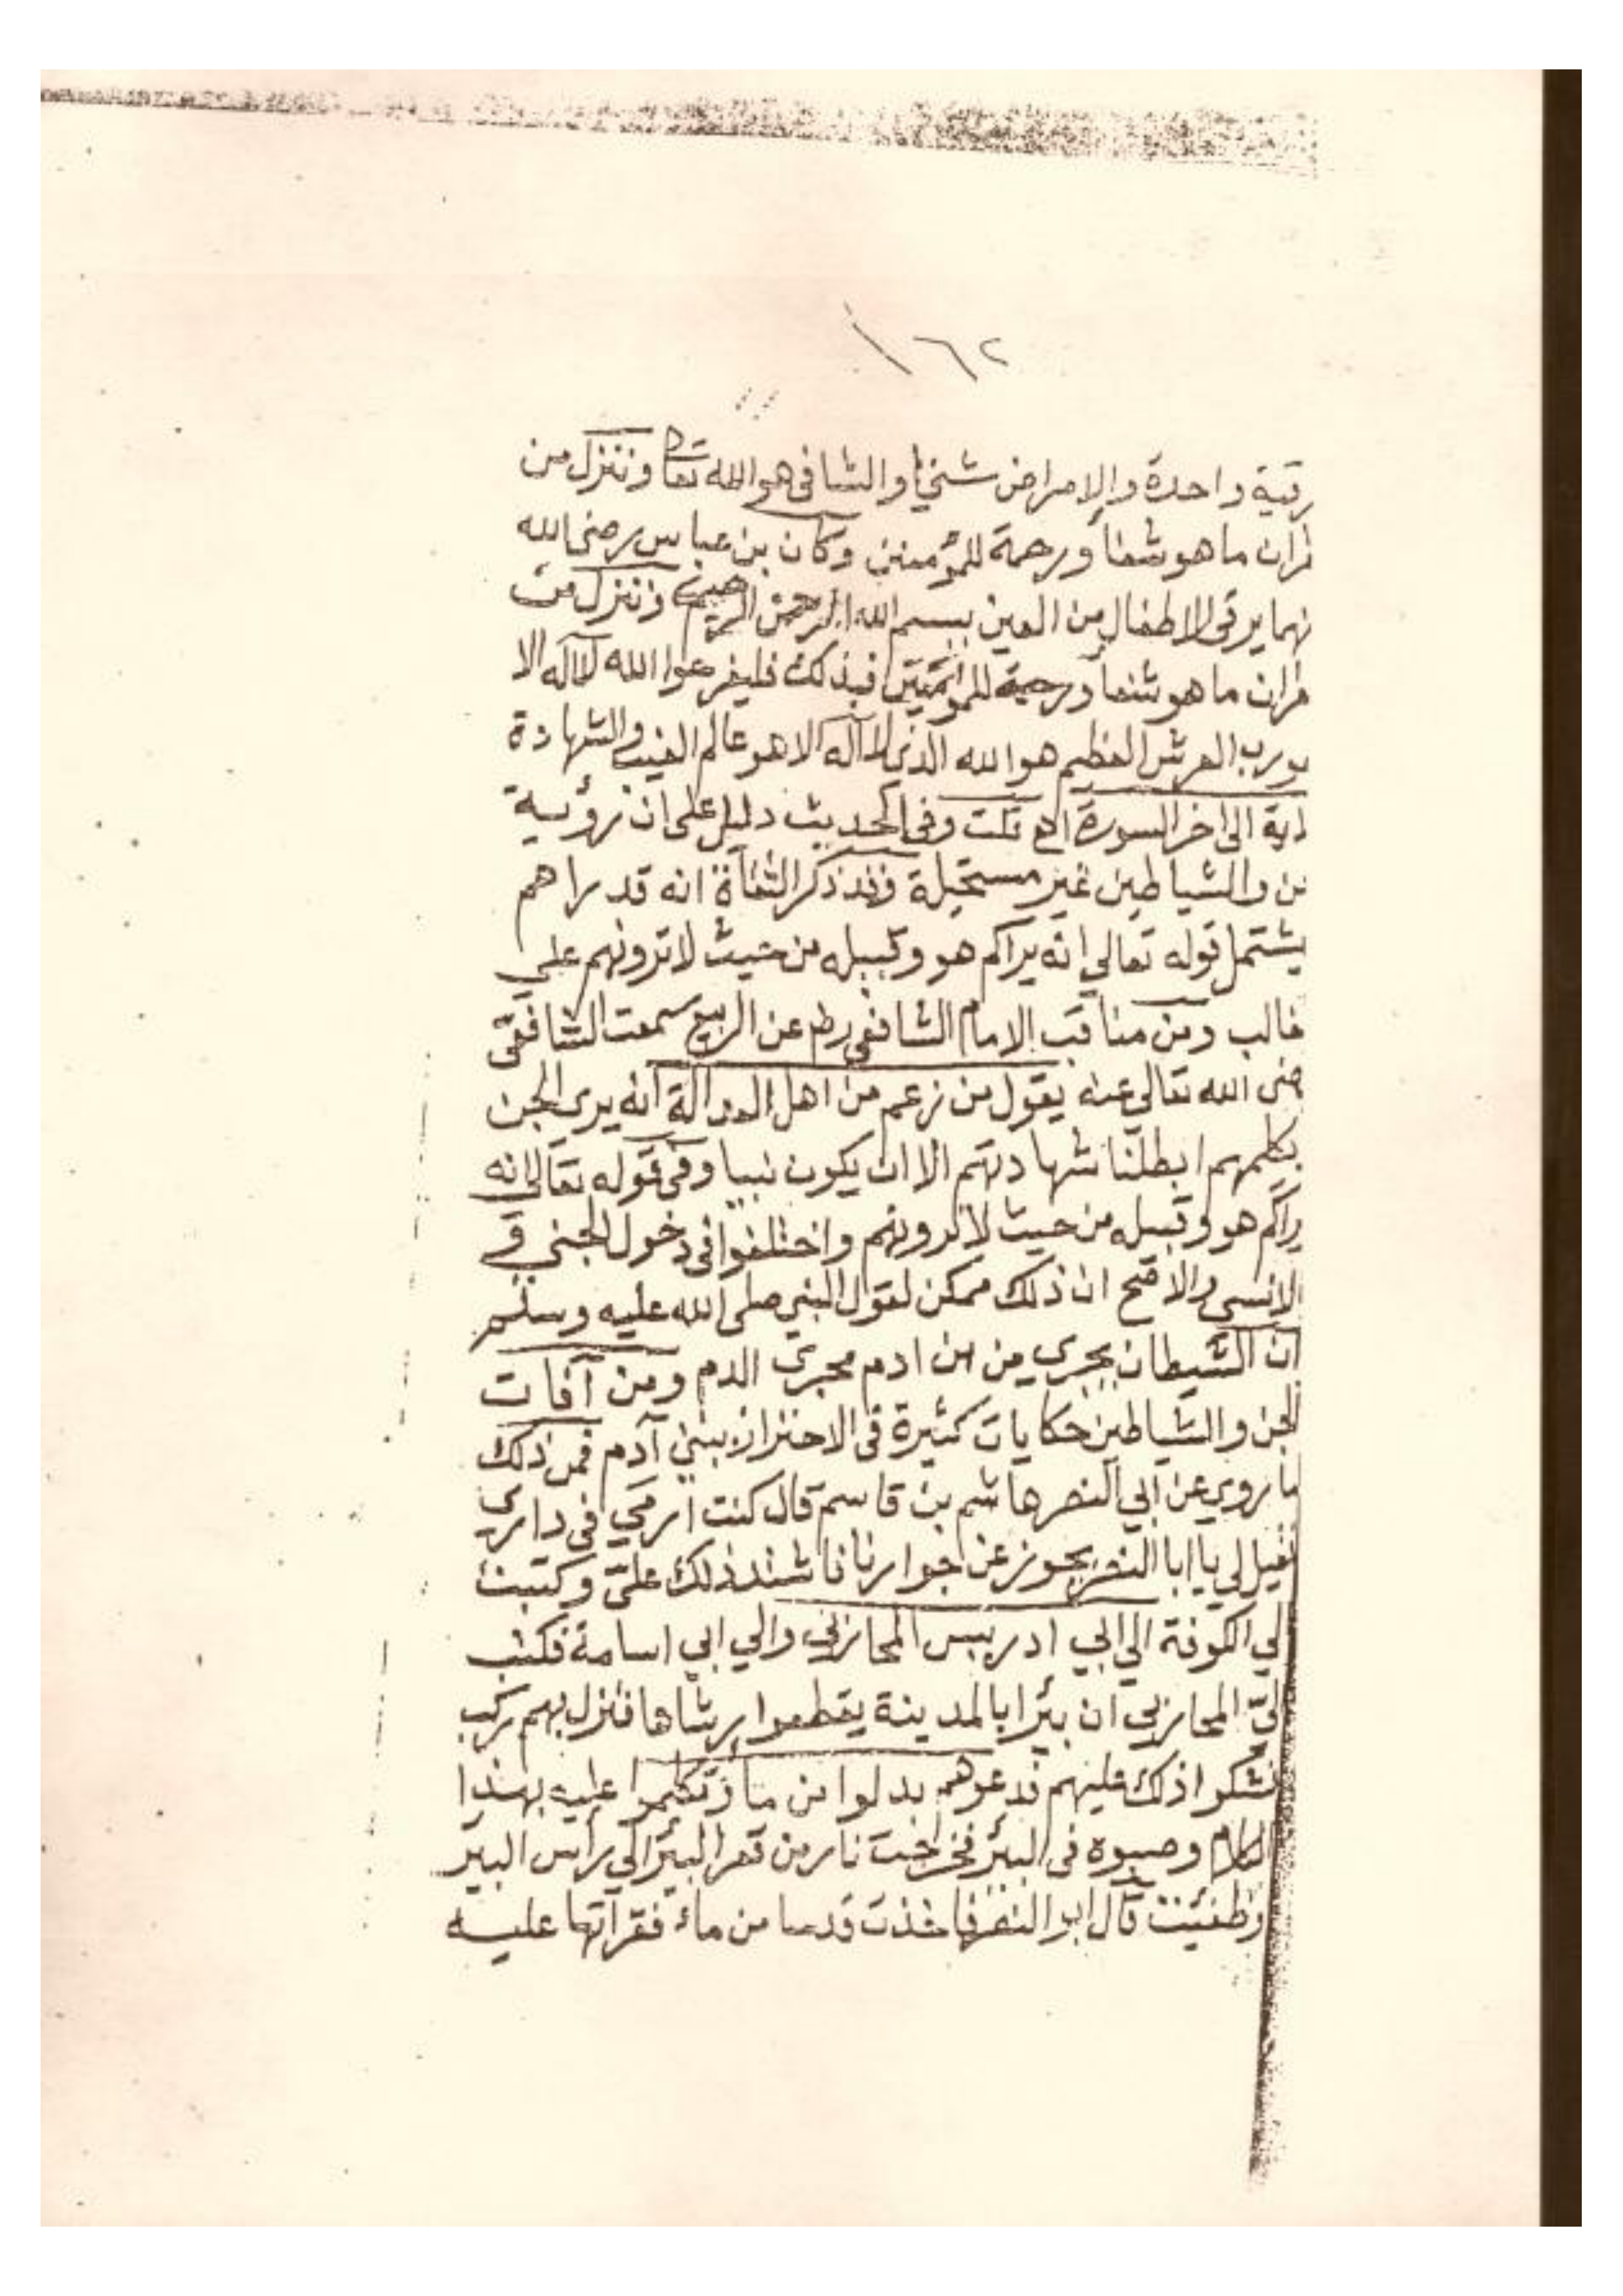 ١٦٢
رقية واحدة والامراض شتى والشافى هو الله تعا وننزل من
ران ما هو شفاً ورحمة للمؤمنين وكان بن عباس رضى الله
نهما يرقى الاطفال من العين ببسم الله الرحمن الرحيم وننزل من
قران ما هو شفاً ورحمة للمؤمنين فبذلك فليفرحوا الله لا اله الا
رب العرش العظيم هو الله الذى لا اله الا هو عالم الغيب والشهادة
اية الى اخر السورة اهـ قلت وفى الحديث دليل على ان رؤية
ن والشياطين غير مستحيلة فقد ذكر الثقاة انه قد راهم
يشتمل قوله تعالي انه يراكم هو وقبيله من حيث لا ترونهم علي
غالب ومن مناقب الامام الشافعى عن الربيع سمعت الشافعى
ضى الله تعالي عنه يقول من زعم من اهل العدالة انه يرى الجن
يكلمهم ابطلنا شهادتهم الا ان يكون نبيا وفى قوله تعالى انه
راكم هو وقبيله من حيث لا ترونهم واختلفوا فى دخول الجني في
الانسي والاصح ان ذلك ممكن لقول النبي صلى الله عليه وسلم
ان الشيطان يجري من ابن ادم مجرى الدم ومن آفات
الجن والشياطين حكايات كثيرة فى الاحتراز ببني آدم فمن ذلك
ما روي عن ابي النضر هاشم بن قاسم قال كنت ارمي فى داري
فقيل لي يا ابا النضر يحوز عن جوارنا فاشتد ذلك عليّ وكتبت
لي الكوفة الي ابي ادريس المحاربي والي ابي اسامة فكتب
ليّ المحاربي ان بئرا بالمدينة يقطعوا رشاها فنزل بهم ركب
فشكوا ذلك عليهم فدعوهم بدلوا من ماء تكلموا عليه بهذا
الكلام وصبوه فى البئر فخراجت نار من قعر البئر الي رأس البير
وطفئت قال ابو النضر فاخذت قدحا من ماء فقراتها عليه